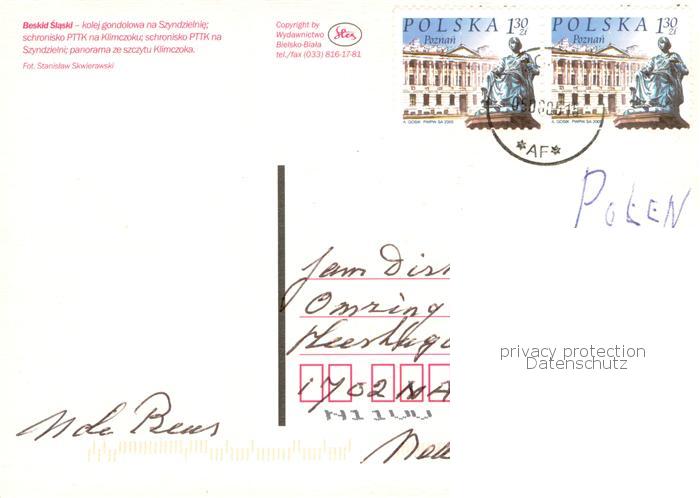 Beskid Śląski – kolej gondolowa na Szyndzielnię;
schronisko PTTK na Klimczoku; schronisko PTTK na
Szyndzielni; panorama ze szczytu Klimczoka.
Fot. Stanisław Skwierawski
Copyright by
Wydawnictwo
Bielsko-Biała
tel./fax (033) 816-17-81
POLSKA 1,30 zł
Poznań
A. GOSIK PWPW SA 2005
POLSKA 1,30 zł
Poznań
A. GOSIK PWPW SA 2005
*AF*
POLEN
Omring
1702 NA
privacy protection
Datenschutz